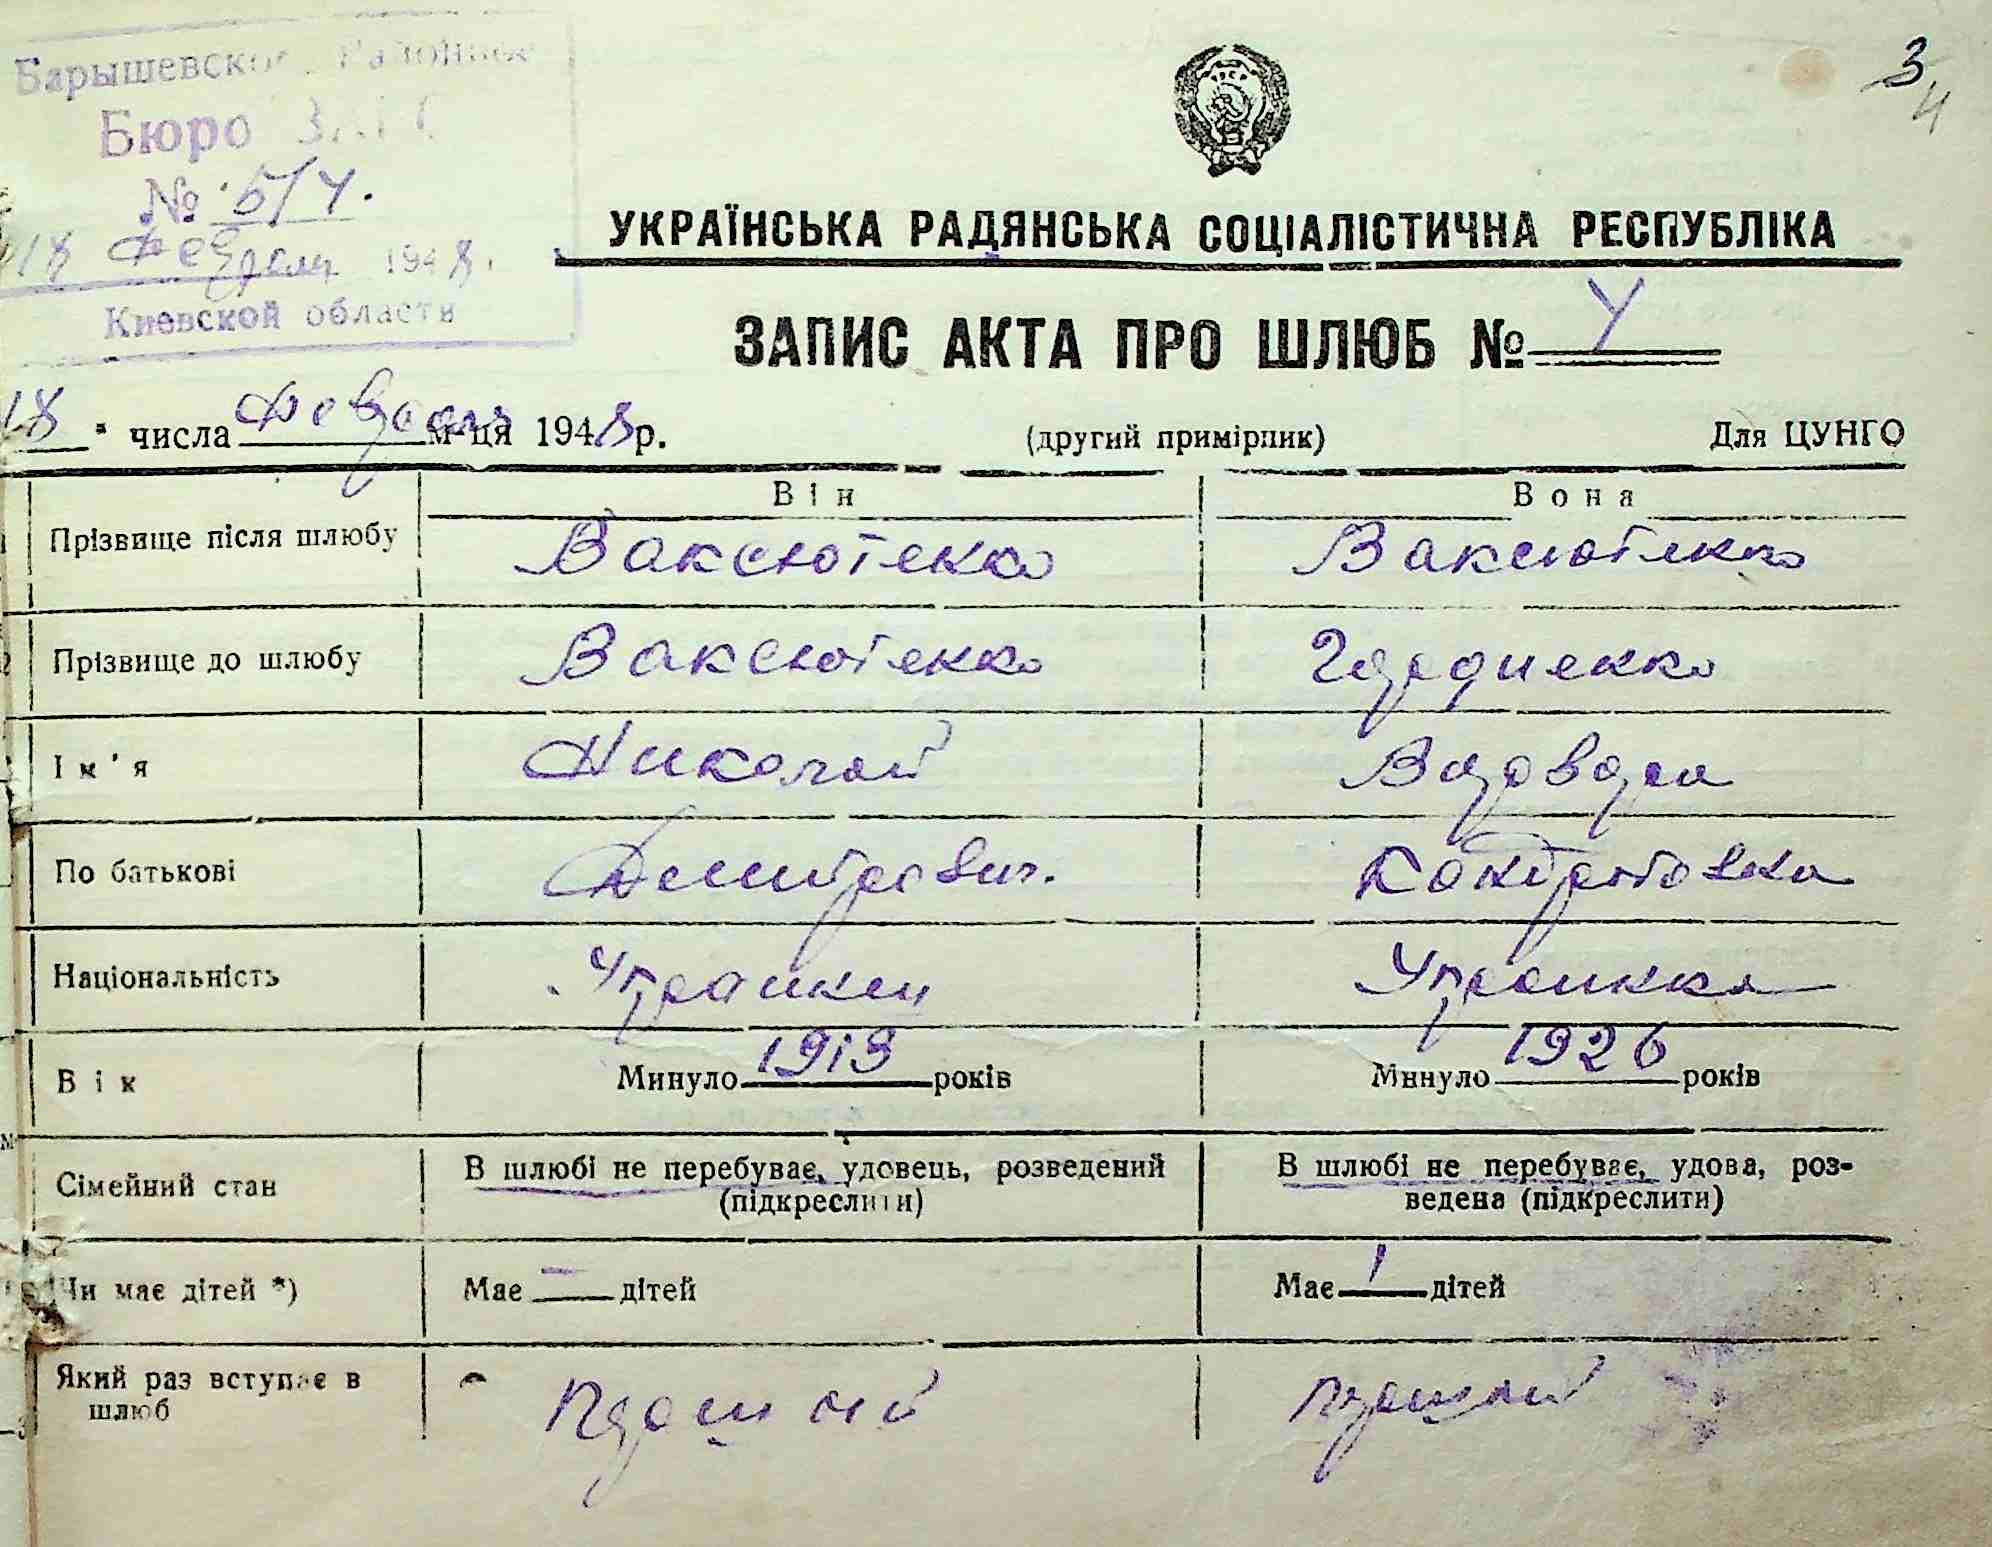 Барышевское Районное
Бюро ЗАГС
№ 5/4.
18 Февраля 1948.
Киевской области
3
4
УКРАЇНСЬКА РАДЯНСЬКА СОЦІАЛІСТИЧНА РЕСПУБЛІКА
ЗАПИС АКТА ПРО ШЛЮБ № 4
18 " числа Февраля м-ця 1948 р. (другий примірник) Для ЦУНГО
Він Вона
Прізвище після шлюбу Ваксютенко Ваксютенко
Прізвище до шлюбу Ваксютенко
Ім'я Николай Варвара
По батькові Дмитрович. Кондратовна
Національність Украинец Украинка
Вік Минуло 1918 років Минуло 1926 років
Сімейний стан В шлюбі не перебуває, удовець, розведений (підкреслити) В шлюбі не перебуває, удова, роз-
ведена (підкреслити)
Чи має дітей *) Має — дітей Має 1 дітей
Який раз вступає в
шлюб первый первый